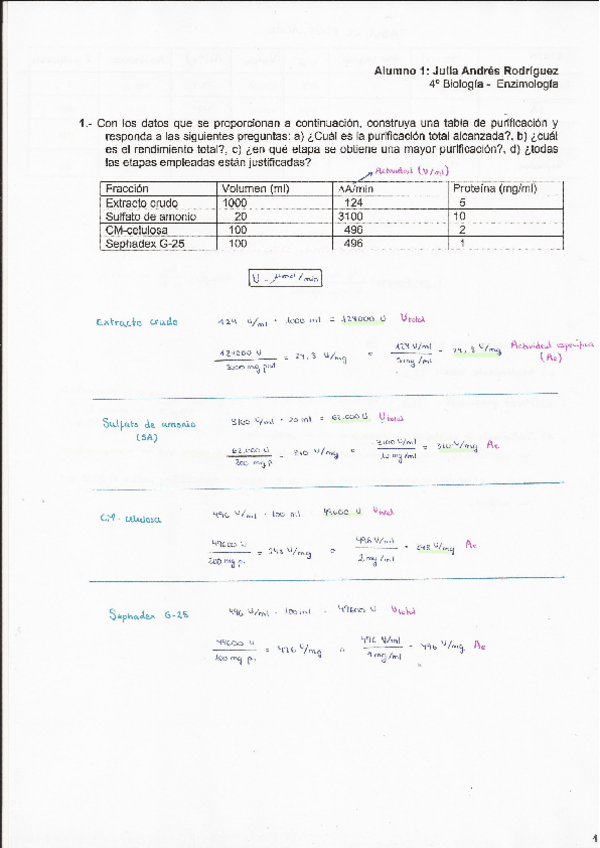 Alumno 1: Julia Andrés Rodríguez
4º Biología - Enzimología
1.- Con los datos que se proporcionan a continuación, construya una tabla de purificación y
responda a las siguientes preguntas: a) ¿Cuál es la purificación total alcanzada?, b) ¿cuál
es el rendimiento total?, c) ¿en qué etapa se obtiene una mayor purificación?, d) ¿todas
las etapas empleadas están justificadas?
Actividad (U/ml)
Fracción Volumen (ml) ΔA/min Proteína (mg/ml)
Extracto crudo 1000 124 5
Sulfato de amonio 20 3100 10
CM-celulosa 100 496 2
Sephadex G-25 100 496 1
U = μmol/min
Extracto crudo 124 U/ml · 1000 ml = 124000 U Utotal
124000 U / 5000 mg prot = 24,8 U/mg o 124 U/ml / 5 mg/ml = 24,8 U/mg Actividad específica
(Ae)
Sulfato de amonio 3100 U/ml · 20 ml = 62.000 U Utotal
(SA)
62.000 U / 200 mg p. = 310 U/mg o 3100 U/ml / 10 mg/ml = 310 U/mg Ae
CM-celulosa 496 U/ml · 100 ml 49600 U Utotal
49600 U / 200 mg p. = 248 U/mg o 496 U/ml / 2 mg/ml = 248 U/mg Ae
Sephadex G-25 496 U/ml · 100 ml = 49600 U Utotal
49600 U / 100 mg p. = 496 U/mg o 496 U/ml / 1 mg/ml = 496 U/mg Ae
1